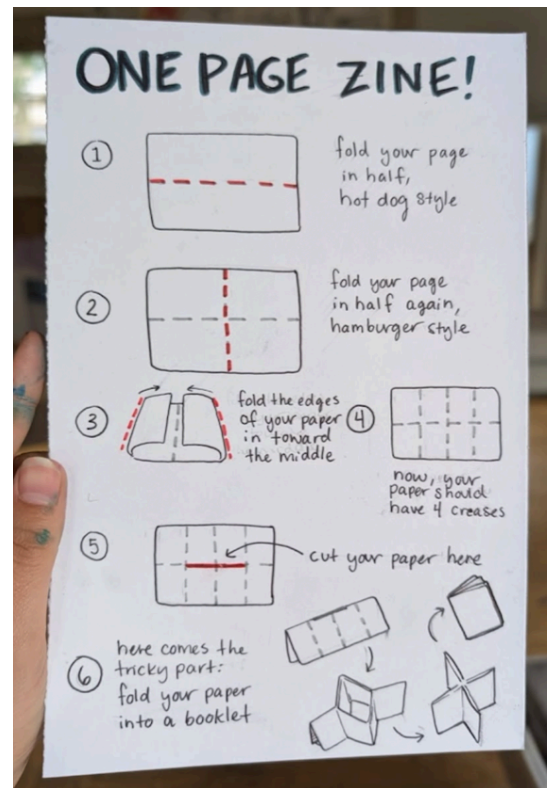 ONE PAGE ZINE!
1
fold your page
in half,
hot dog style
2
fold your page
in half again,
hamburger style
3
fold the edges
of your paper
in toward
the middle
4
now, your
paper should
have 4 creases
5
cut your paper here
6
here comes the
tricky part:
fold your paper
into a booklet